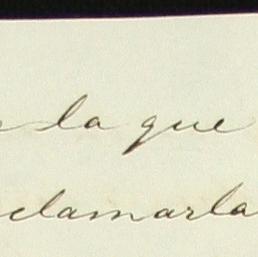 la que
clamarla